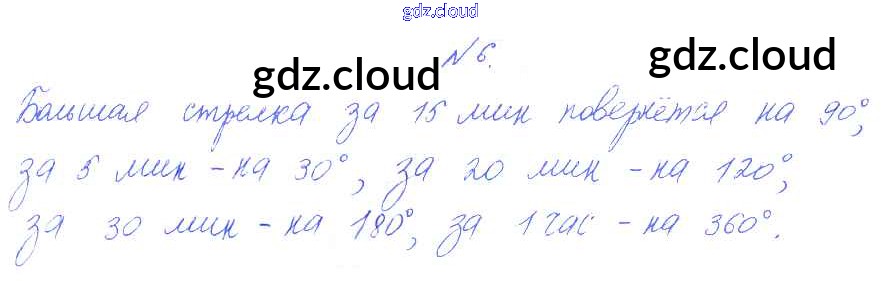 gdz.cloud
№ 6.
gdz.cloud gdz.cloud
Большая стрелка за 15 мин повернётся на 90°,
за 5 мин - на 30°, за 20 мин - на 120°,
за 30 мин - на 180°, за 1 час - на 360°.